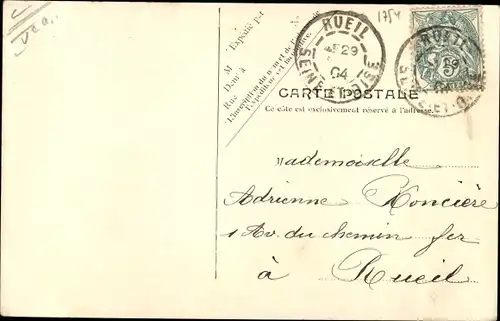 Vea.
1754
Expédié par
M
Demt à
Rue
N°
L'inscription du nom et de l'adresse de
l'Expéditeur est facultative.
RUEIL
29
04
SEINE-ET-OISE
RUEIL
5c
CARTE POSTALE
Ce côté est exclusivement réservé à l'adresse.
Mademoiselle
Adrienne Roncière
1 Av. du chemin fer
à Rueil